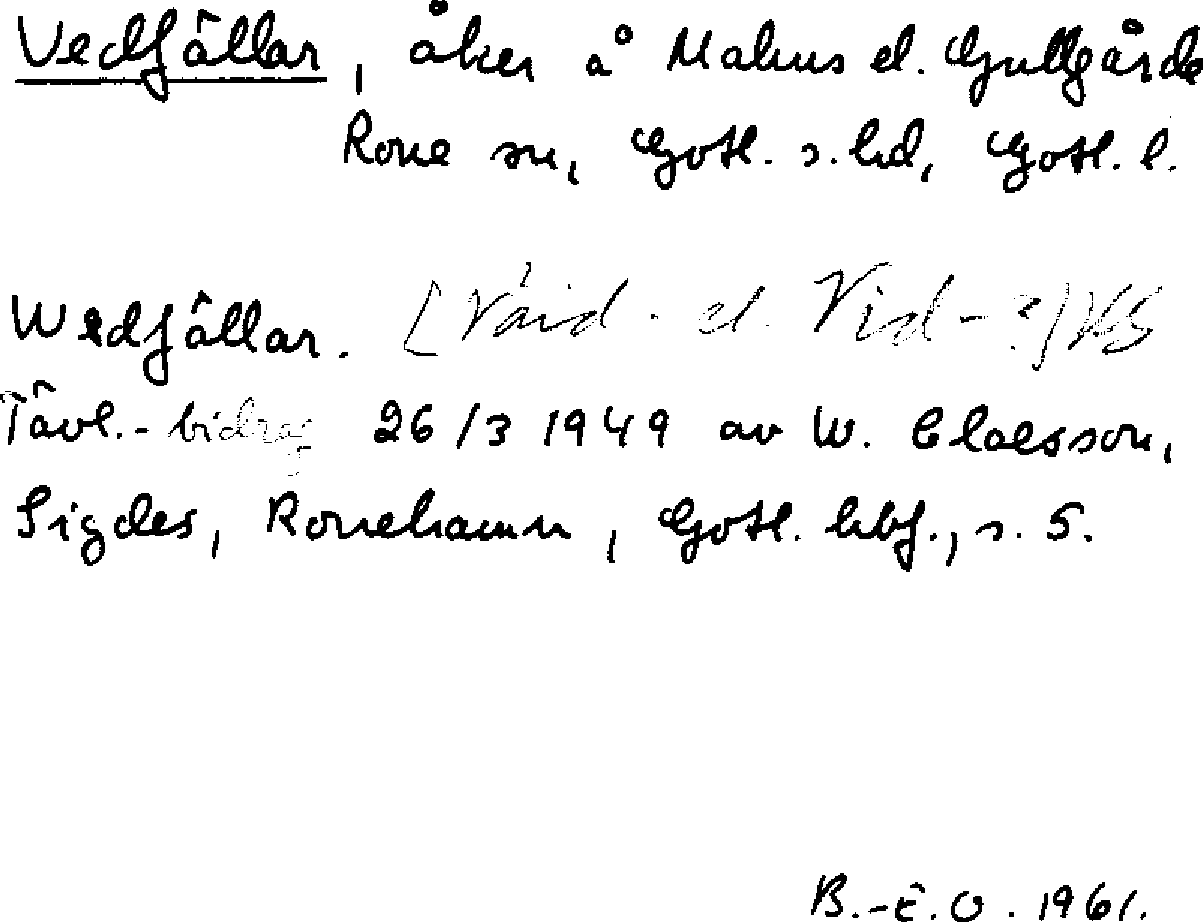 Vedfällar, åker å Makus el. Gullgårde
Rone sn, Gotl. s. hd, Gotl. l.
Wedfällar. [Väid- el. Vid-?]
Tävl.-bidrag 26/3 1949 av W. Claesson,
Sigdes, Ronehamn, Gotl. hbf., s. 5.
B.-E. O. 1961.